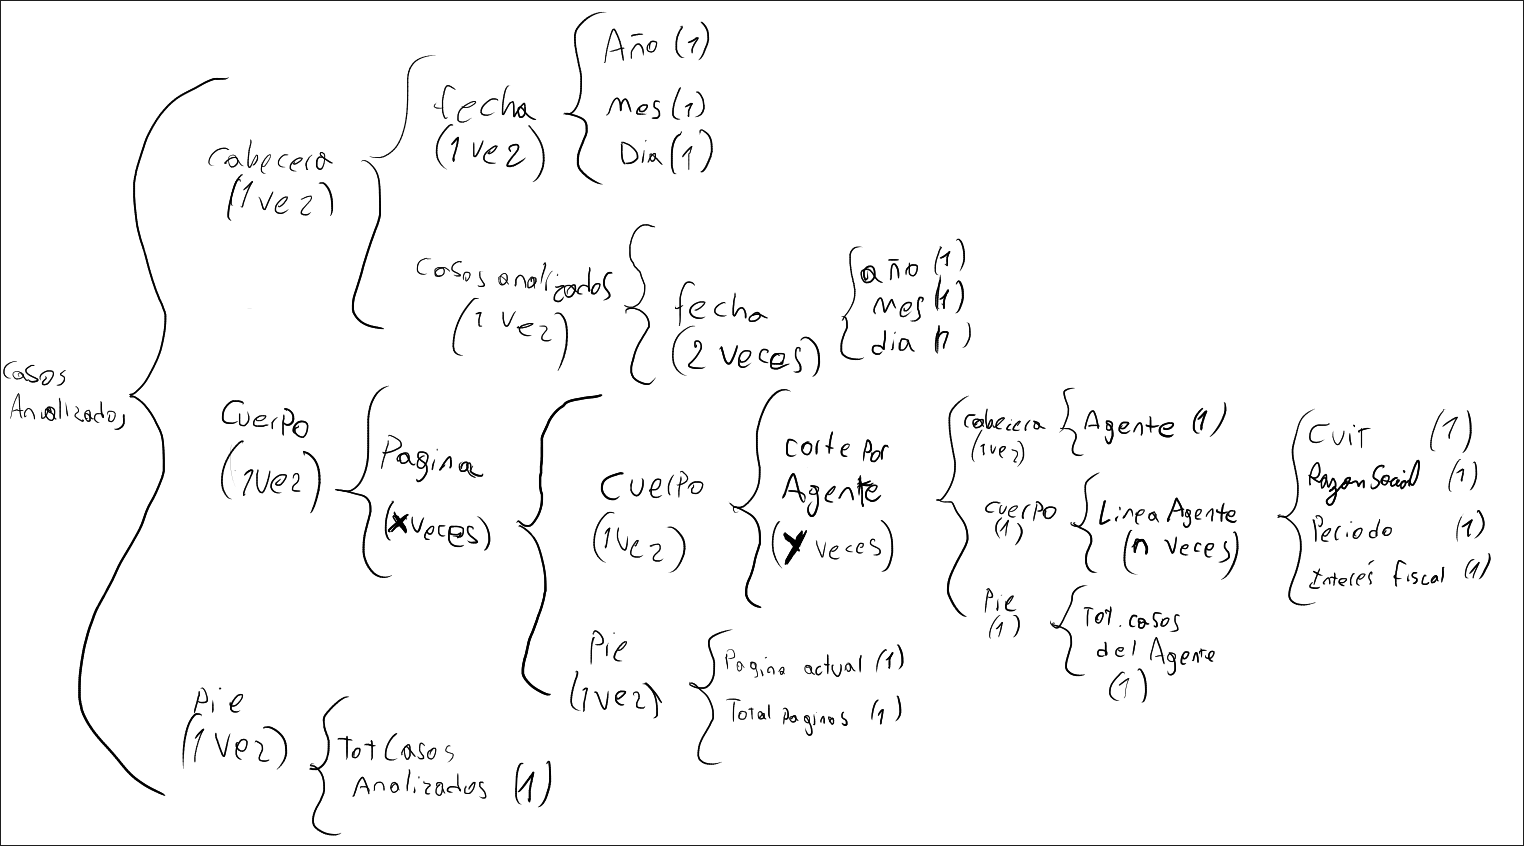 Casos
Analizados
cabecera
(1 vez)
fecha
(1 vez)
Año (1)
mes (1)
Dia (1)
Casos analizados
(1 vez)
fecha
(2 veces)
año (1)
mes (1)
dia (1)
Cuerpo
(1vez)
Pagina
(X veces)
Cuerpo
(1vez)
corte por
Agente
(Y veces)
cabecera
(1vez)
Agente (1)
cuerpo
(1)
Linea Agente
(n veces)
Cuit (1)
Razon Social (1)
Periodo (1)
Interés fiscal (1)
Pie
(1)
Tot. casos
del Agente
(1)
Pie
(1vez)
Pagina actual (1)
Total paginas (1)
Pie
(1 vez)
Tot Casos
Analizados (1)